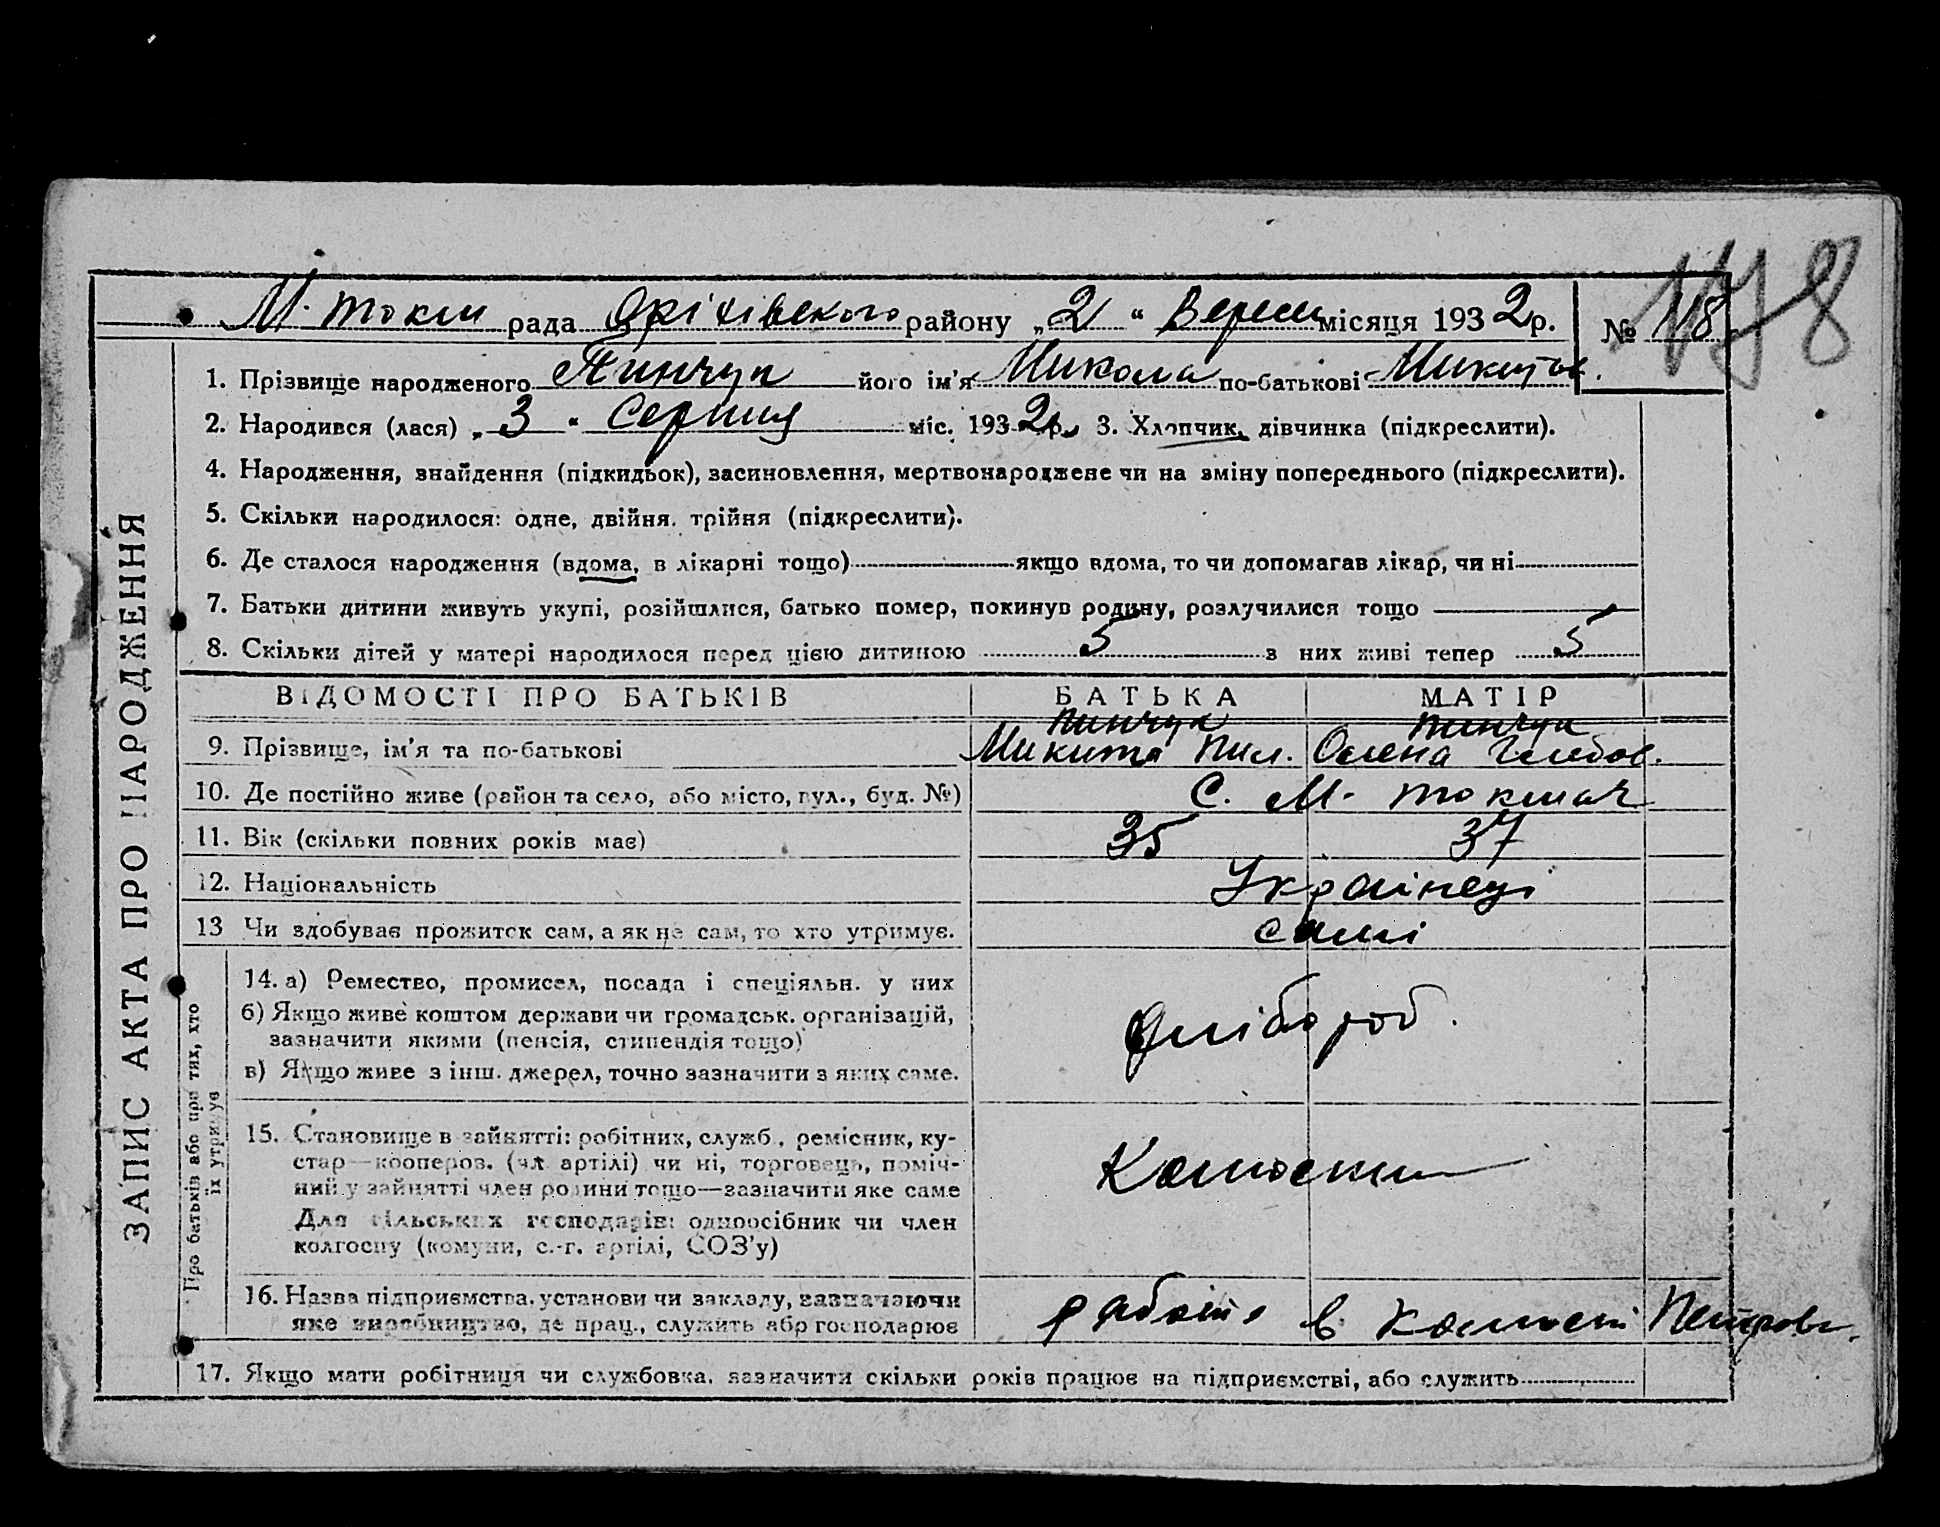 М. Токм рада Оріхівського району „2“ Вересн місяця 1932 р. № 118
178
1. Прізвище народженого Пинчук його ім'я Микола по-батькові Микитов.
2. Народився (лася) „3“ Серпня міс. 1932 р. 3. Хлопчик, дівчинка (підкреслити).
4. Народження, знайдення (підкидьок), засиновлення, мертвонароджене чи на зміну попереднього (підкреслити).
5. Скільки народилося: одне, двійня. трійня (підкреслити).
6. Де сталося народження (вдома, в лікарні тощо) якщо вдома, то чи допомагав лікар, чи ні
7. Батьки дитини живуть укупі, розійшлися, батько помер, покинув родину, розлучилися тощо
8. Скільки дітей у матері народилося перед цією дитиною 5 з них живі тепер 5
ВІДОМОСТІ ПРО БАТЬКІВ БАТЬКА МАТІР
Пинчук Пинчук
9. Прізвище, ім'я та по-батькові Микита Пил. Олена Глебов.
10. Де постійно живе (район та село, або місто, вул., буд. №) С. М. Токмач
11. Вік (скільки повних років має) 35 37
12. Національність Українеці
13 Чи здобуває прожиток сам, а як не сам, то хто утримує. самі
14. а) Ремество, промисел, посада і спеціяльн. у них
б) Якщо живе коштом держави чи громадськ. організацій,
зазначити якими (пенсія, стипендія тощо)
хлібороб.
в) Якщо живе з інш. джерел, точно зазначити з яких саме.
15. Становище в зайнятті: робітник, служб., ремісник, ку-
стар—кооперов. (чл. артілі) чи ні, торговець, поміч-
ний у зайнятті член родини тощо—зазначити яке саме
Для сільських господарів: одноосібник чи член
колгоспу (комуни, с.-г. артілі, СОЗ'у)
16. Назва підприємства, установи чи закладу, зазначаючи
яке виробництво, де прац., служить або господарює
в Петровс.
17. Якщо мати робітниця чи службовка, зазначити скільки років працює на підприємстві, або служить
ЗАПИС АКТА ПРО НАРОДЖЕННЯ
Про батьків або про тих, хто
їх утримує